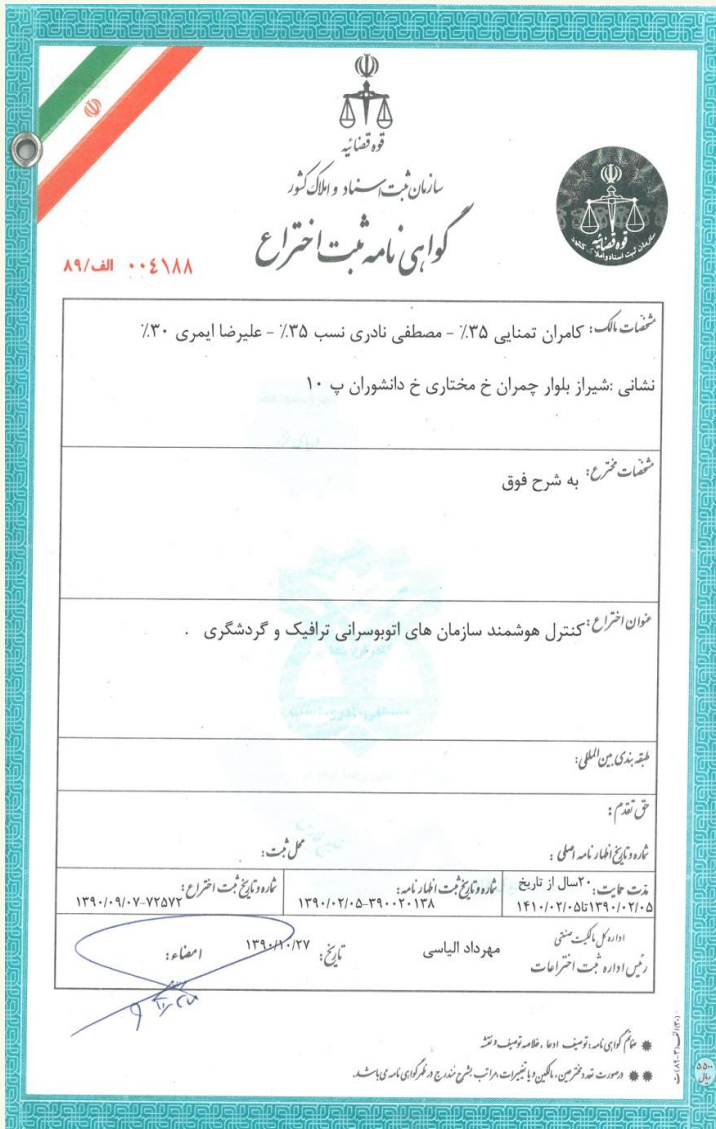 قوه قضائیه
سازمان ثبت اسناد و املاک کشور
گواهی نامه ثبت اختراع
قوه قضائیه
سازمان ثبت اسناد و املاک کشور
۰۰٤۱۸۸ الف/۸۹
مشخصات مالک: کامران تمنایی ۳۵٪ - مصطفی نادری نسب ۳۵٪ - علیرضا ایمری ۳۰٪
نشانی :شیراز بلوار چمران خ مختاری خ دانشوران پ ۱۰
مشخصات مخترع: به شرح فوق
عنوان اختراع: کنترل هوشمند سازمان های اتوبوسرانی ترافیک و گردشگری .
طبقه بندی بین المللی:
حق تقدم:
شماره و تاریخ اظهار نامه اصلی: محل ثبت:
مدت حمایت: ۲۰سال از تاریخ
۱۳۹۰/۰۲/۰۵تا۱۴۱۰/۰۲/۰۵
شماره و تاریخ ثبت اظهار نامه:
۱۳۹۰/۰۲/۰۵-۳۹۰۰۲۰۱۳۸
شماره و تاریخ ثبت اختراع:
۱۳۹۰/۰۹/۰۷-۷۲۵۷۲
اداره کل مالکیت صنعتی
رئیس اداره ثبت اختراعات
مهرداد الیاسی
تاریخ: ۱۳۹۰/۱۰/۲۷
امضاء:
ضمائم گواهی نامه: توصیف، ادعا، خلاصه توصیف و نقشه
درصورت تعدد مخترعین، مالکین و یا تغییرات، مراتب بشرح مندرج در ظهر گواهی نامه می باشد.
۵۵۰ ریال